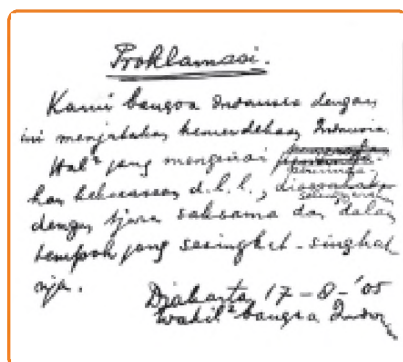 Proklamasi.
Kami bangsa Indonesia dengan
ini menjatakan kemerdekaan Indonesia.
Hal² jang mengenai
kan kekoeasaan d.l.l.,
dengan tjara saksama dan dalam
tempoh jang sesingkat-singkat
nja.
Djakarta 17-8-'05
Wakil² bangsa Indon